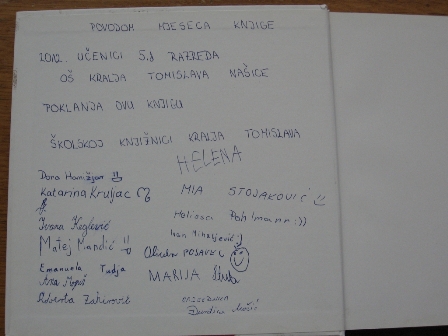 POVODOM MJESECA KNJIGE
2012. UČENICI 5.d RAZREDA
OŠ KRALJA TOMISLAVA NAŠICE
POKLANJA OVU KNJIGU
ŠKOLSKOJ KNJIŽNICI KRALJA TOMISLAVA
HELENA
Katarina Kruljac
MIA STOJAKOVIĆ
Ivona Keglević
Melissa Pohlmann :))
Matej Mandić
Ivan Mihaljević
POSAVEC
Emanuela Tadja
MARIJA
Ana
Roberta
RAZREDNICA